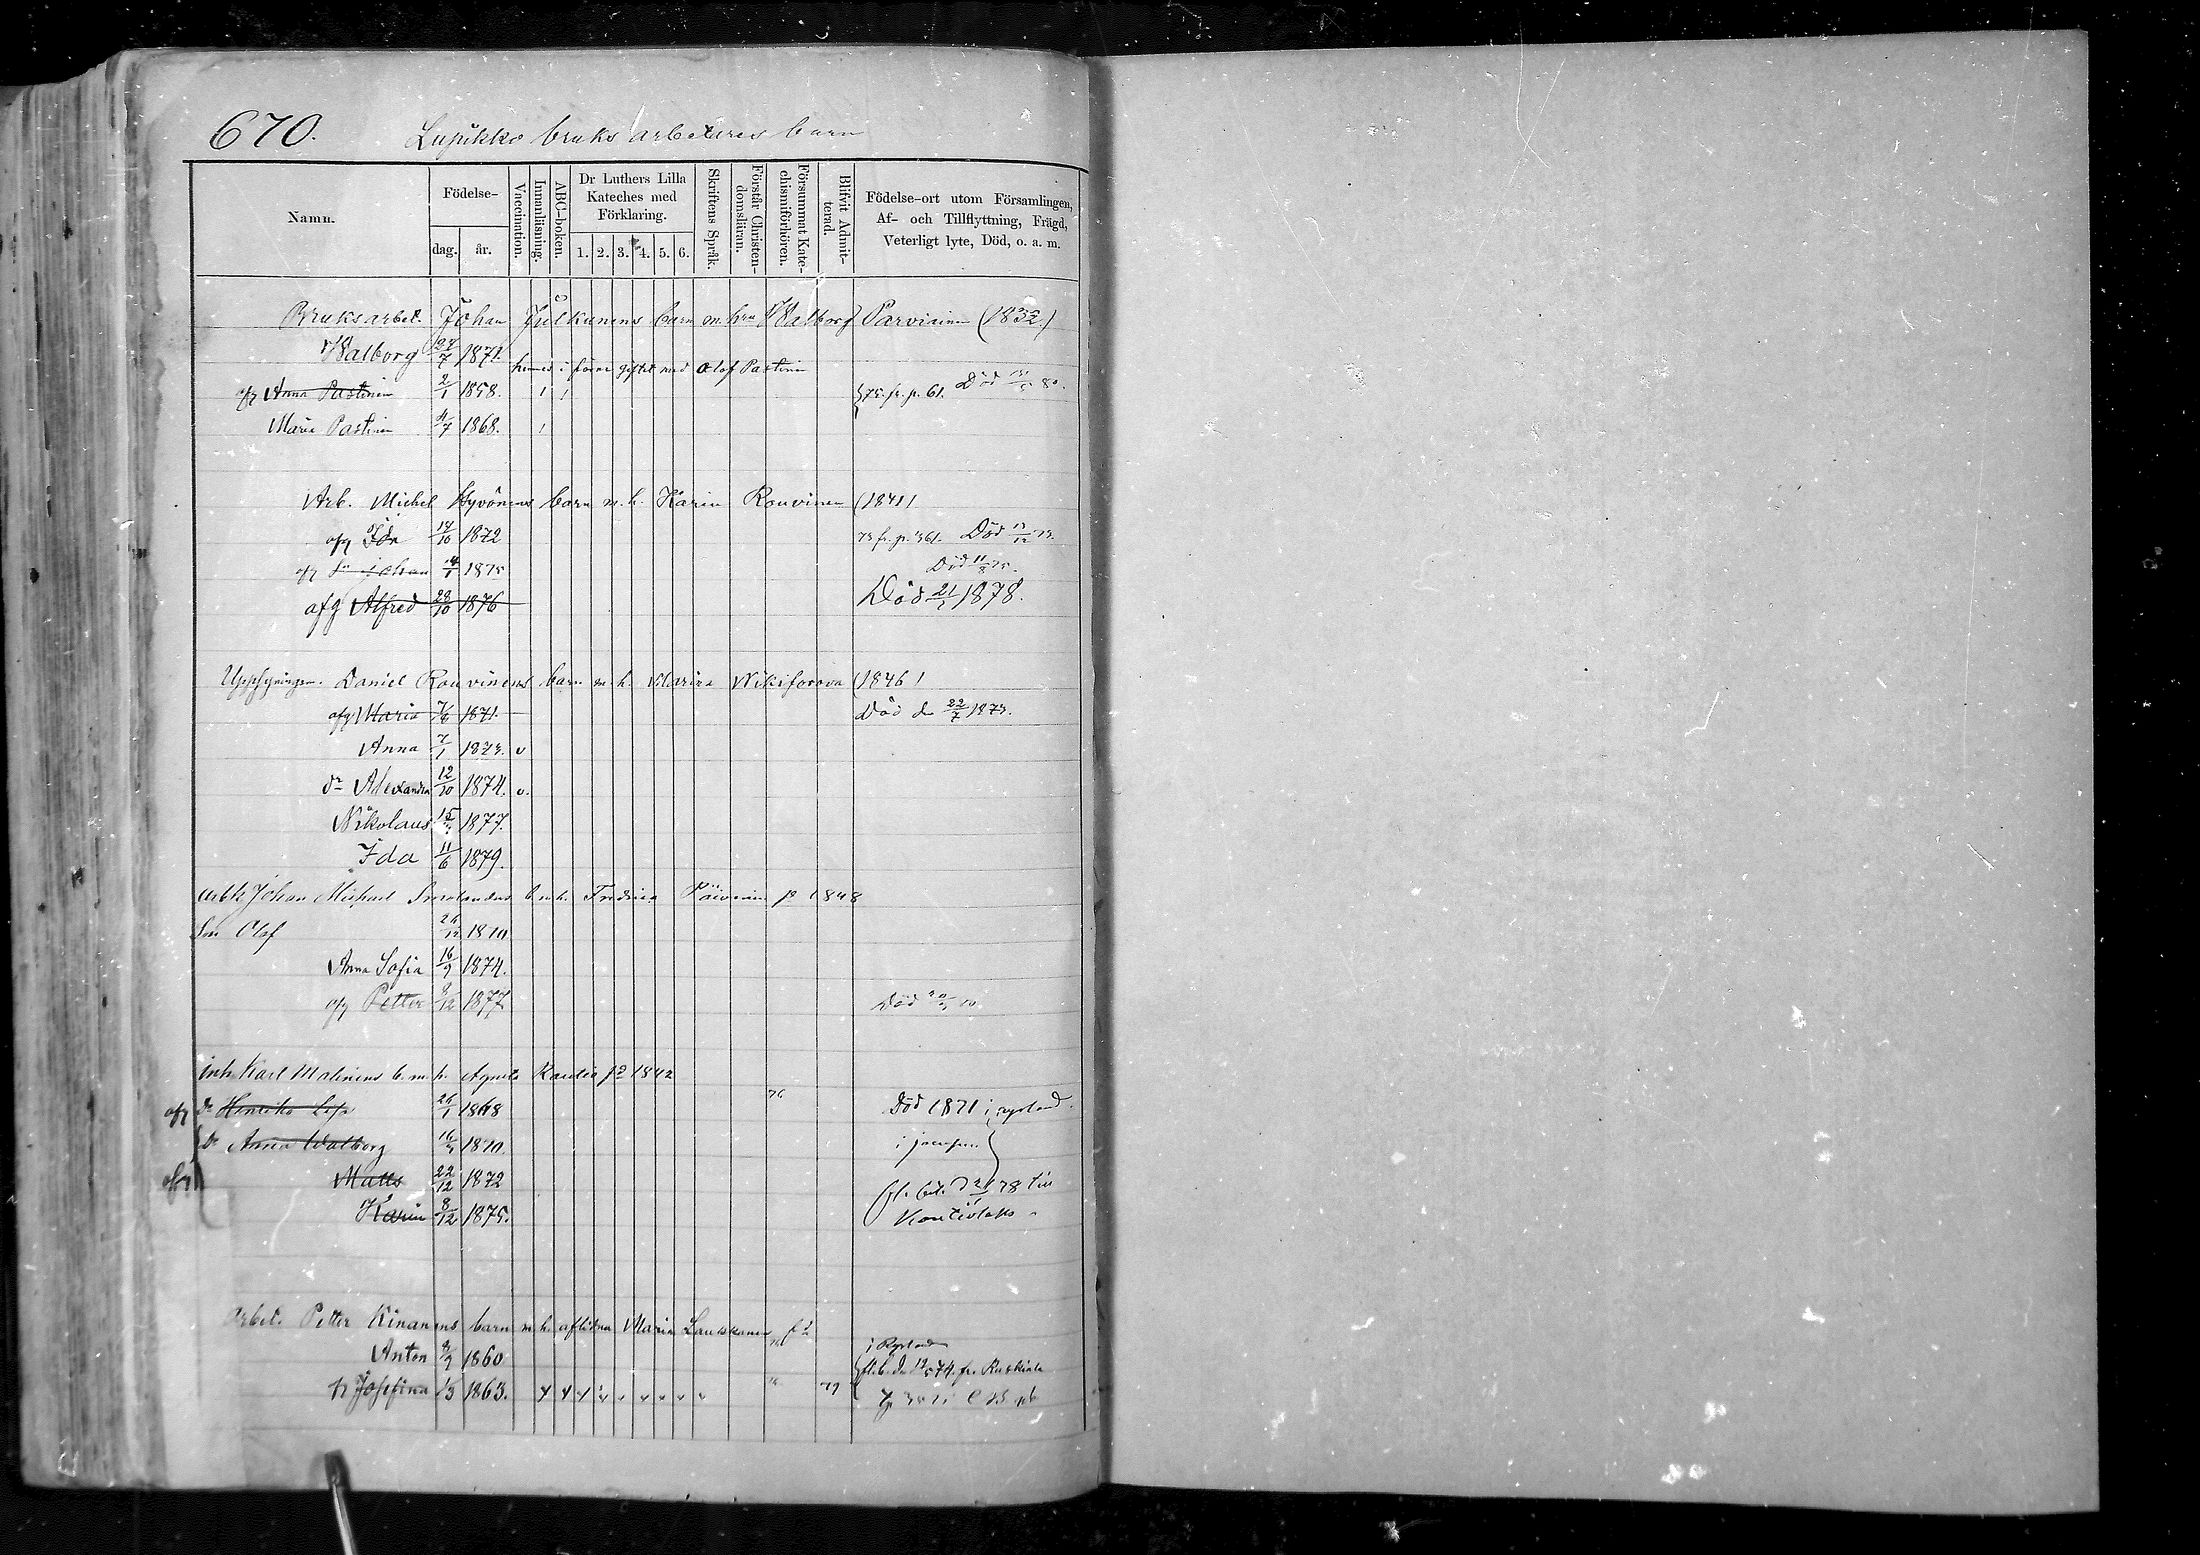 670. Lupikko bruks arbetares barn
Namn.
Födelse-
dag.
år.
Vaccination.
Innanläsning.
ABC-boken.
Dr Luthers Lilla
Kateches med
Förklaring.
1. 2. 3. 4. 5. 6.
Skriftens Språk.
Förstår Christen-
domsläran.
Försummat Kate-
chismiförhören.
Blifvit Admit-
terad.
Födelse-ort utom Församlingen,
Af- och Tillflyttning, Frägd,
Veterligt lyte, Död, o. a. m.
Bruksarbet. Johan Julkunens barn m. hru Walborg Parviainen (1832.)
Walborg 24/7 1871.
hennes i förra giftet med Olof Pastinen
afg Anna Pastinen 2/1 1858. 73. fr. p. 61. Död 80.
Maria Pastinen 4/7 1868.
Arb. Michel Hyvönens barn m. h. Karin Rouvinen (1841)
afg Ida 14/10 1872 73 fr. p. 361. Död 13/12 73.
afg Sn Johan 4/1 1875 Död 11/8 75.
afg Alfred 28/10 1876 Död 21/1 1878.
Daniel Rouvinens barn m. h. Marina Nikiforova (1846)
afg Maria 7/6 1871. Död den 22/7 1873.
Anna 7/1 1873. v
dr Alexandra 12/10 1874. v.
Nikolaus 15 1877.
Ida 11/6 1879.
Johan Michael b. m. h. Fredrica Päivinen fö 1848
Son Olof 26/12 1870
Anna Sofia 16/9 1874.
afg Petter 9/12 1877 Död
inh. Karl Malinens b. m. h. Agneta Kaulia f2 1842
afg Dr Henrika Lisa 26/1 1868 76 Död 1871 i
Dr Anna Walborg 16 1870.
afg Matts 22/12 1872 fl. bet. 78 till
Karin 8/12 1875. Kontiolaks
Arbet. Petter Kinanens barn m. h. aflidna Maria Laukkanen
Anton 8/9 1860
Josefina 1/3 1863. 79 fl. b. d. 74. fr. Ruskiala